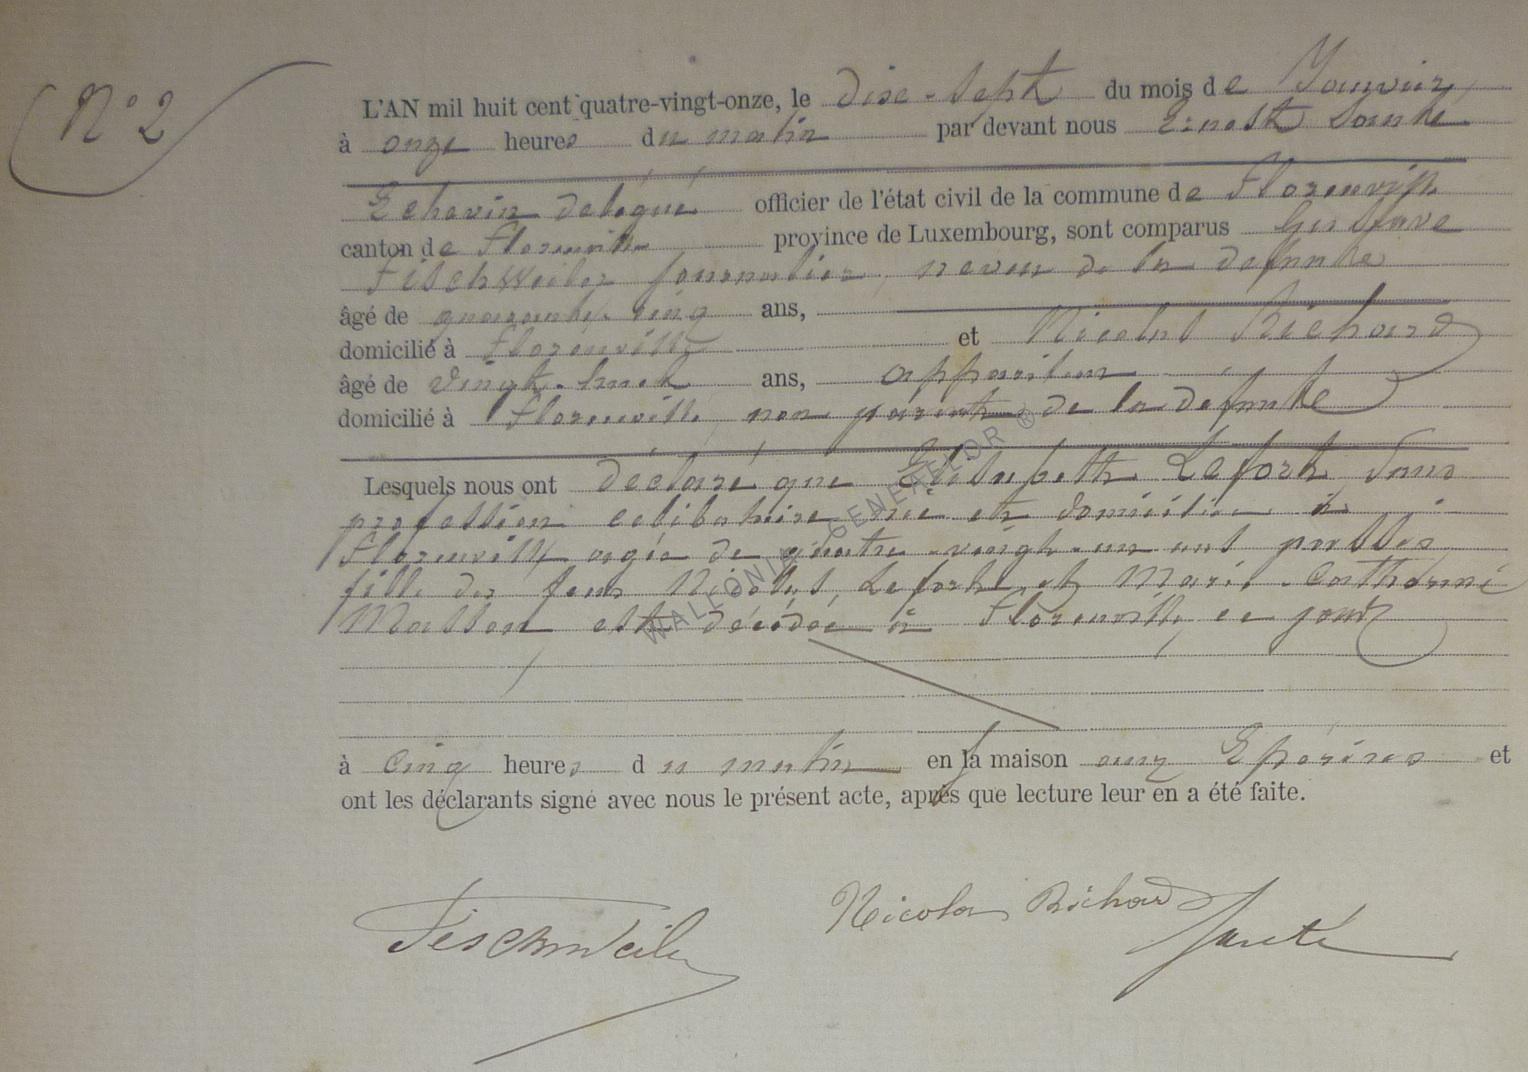 N° 2
L'AN mil huit cent quatre-vingt-onze, le dix-sept du mois de Janvier,
à onze heures du matin par devant nous Ernest Santé
Echevin délégué officier de l'état civil de la commune de Florenville
canton de Florenville province de Luxembourg, sont comparus Gustave
Fischweiler journalier, neveu de la defunte
âgé de quarante-cinq ans,
domicilié à Florenville et Nicolas Richard
âgé de vingt-huit ans, appariteur
domicilié à Florenville, non parent de la defunte
Lesquels nous ont déclaré que Elisabeth Lefort, sans
profession célibataire née et domiciliée à
Florenville agée de quatre-vingt-un ans passés
fille des feus Nicolas Lefort et Marie-Catherine
Masson est décédée à Florenville, ce jour
à cinq heures du matin en la maison aux Epérires et
ont les déclarants signé avec nous le présent acte, après que lecture leur en a été faite.
Fischweiler Nicolas Richard Santé
WALLONIE GENEALOR ®